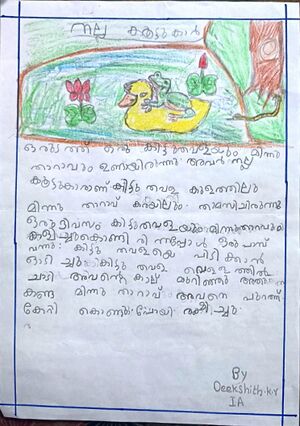 നല്ല കൂട്ടുകാർ
ഒരിടത്ത് ഒരു കിട്ടുതവളയും മിന്നു
താറാവും ഉണ്ടായിരുന്നു അവർ നല്ല
കൂട്ടുകാരാണ് കിട്ടു തവള കുളത്തിലും
മിന്നു താറാവ് കരയിലും താമസിച്ചിരുന്നു
ഒരു ദിവസം കിട്ടുതവളയും മിന്നുതാറാവും
കളിച്ചുകൊണ്ടി രി ന്നപ്പോൾ ഒരു പാമ്പ്
വന്നു കിട്ടു തവളയെ പിടി ക്കാൻ
ഓടി ച്ചു കിട്ടു തവള വെള്ളത്തിൽ
ചാടി അവന്റെ കാല് മുറിഞ്ഞു
കണ്ട മിന്നു താറാവ് അവനെ പുറത്ത്
കേറ്റി കൊണ്ടുപോയി രക്ഷിച്ചു
By
Deekshith.k.v
IA